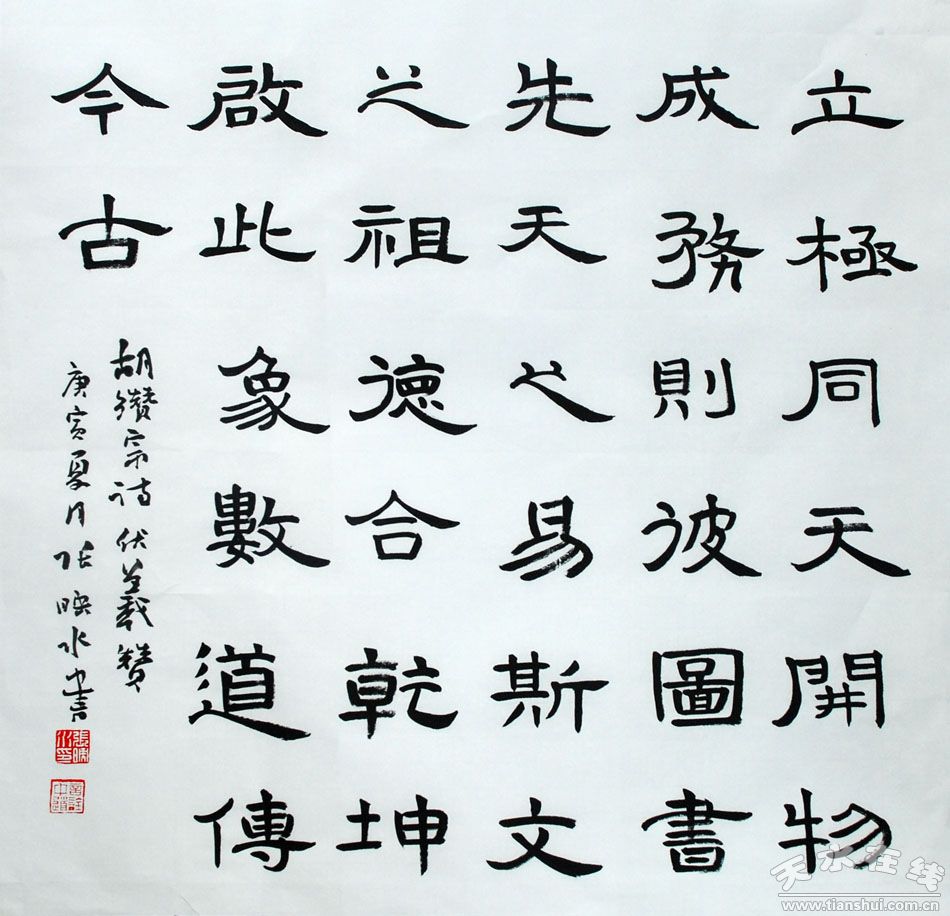 立極同天開物
成務則彼圖書
先天之易斯文
之祖德合乾坤
啟此象數道傳
今古
胡纘宗詩伏羲贊
庚寅夏月張映水書
天水在线
www.tianshui.com.cn